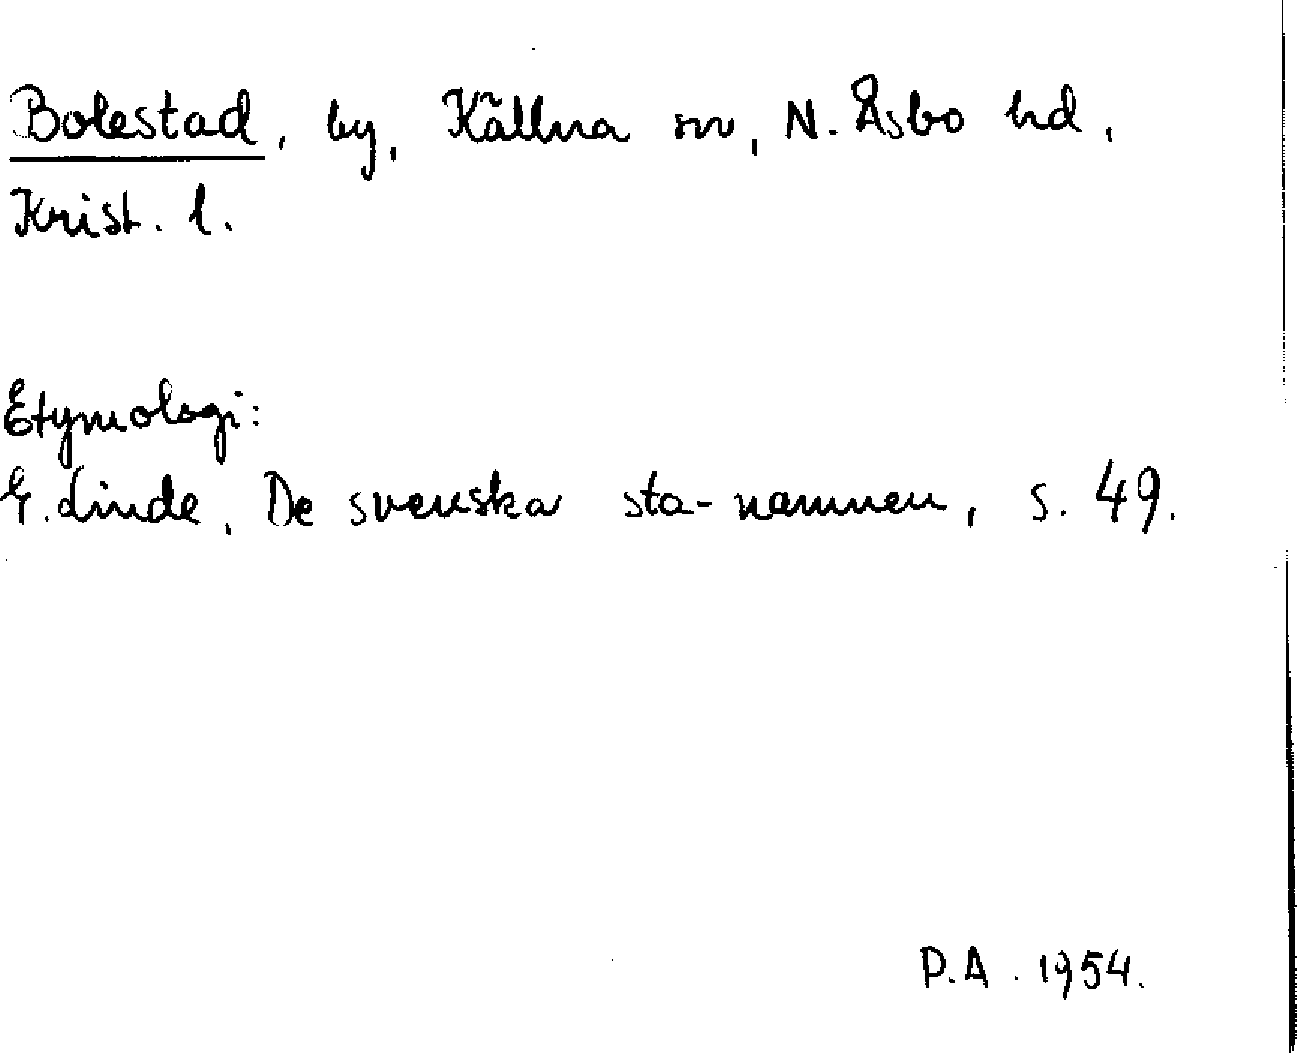 Bolestad, by, Källna sn, N. Åsbo hd,
Krist. l.
Etymologi:
G. Linde, De svenska sta-namnen, s. 49.
P.A. 1954.